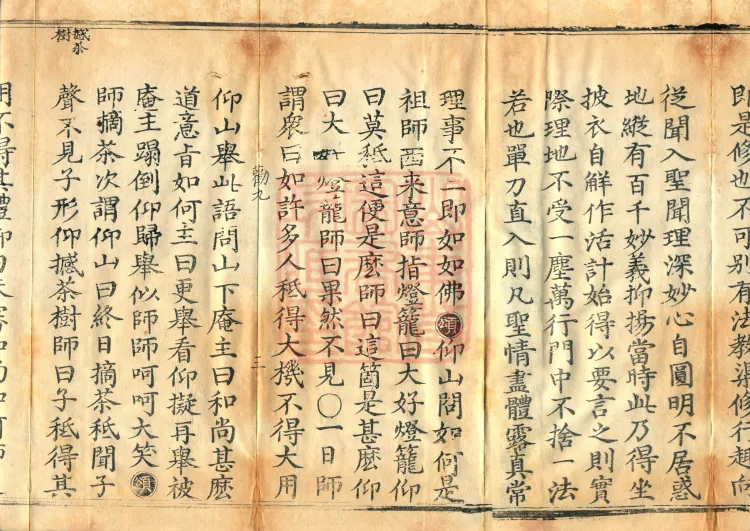 即是修也不可別有法教渠修行趣向
從聞入聖聞理深妙心自圓明不居惑
地縱有百千妙義抑揚當時此乃得坐
披衣自解作活計始得以要言之則實
際理地不受一塵萬行門中不捨一法
若也單刀直入則凡聖情盡體露真常
理事不二即如如佛 頌 仰山問如何是
祖師西來意師指燈籠曰大好燈籠仰
曰莫秪這便是麼師曰這箇是甚麼仰
曰大好燈籠師曰果然不見○一日師
謂衆曰如許多人秪得大機不得大用
勸九
三
仰山舉此語問山下庵主曰和尚甚麼
道意旨如何主曰更舉看仰擬再舉被
庵主蹋倒仰歸舉似師師呵呵大笑 頌
師摘茶次謂仰山曰終日摘茶秪聞子
聲不見子形仰撼茶樹師曰子秪得其
撼茶
樹
用不得其體仰曰未審和尚如何師